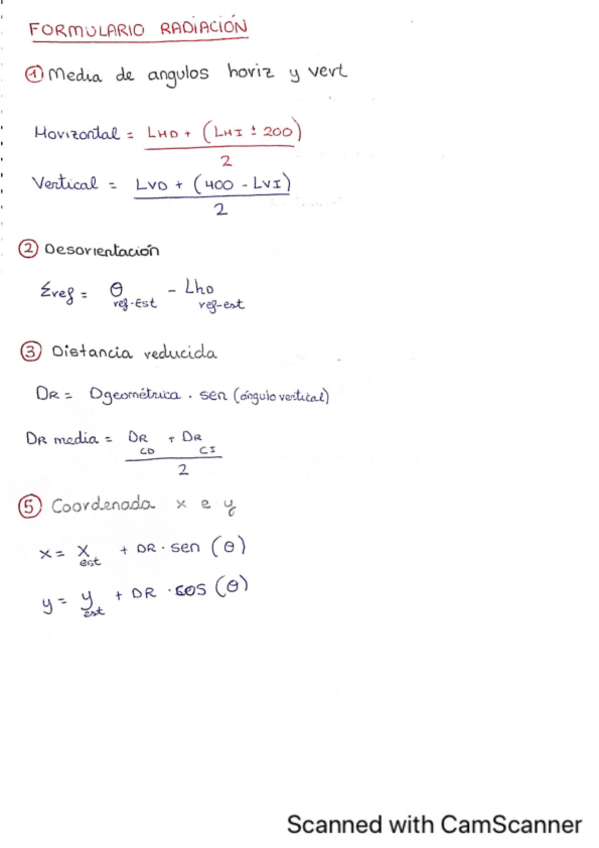 FORMULARIO RADIACIÓN
① Media de angulos horiz y vert
Horizontal = LHD + (LHI ± 200) / 2
Vertical = LVD + (400 - LVI) / 2
② Desorientación
Σref = θ ref-Est - Lho ref-est
③ Distancia reducida
DR = Dgeométrica . sen (ángulo vertical)
DR media = DR CD + DR CI / 2
⑤ Coordenada x e y
x = X est + DR · sen (θ)
y = y est + DR · cos (θ)
Scanned with CamScanner